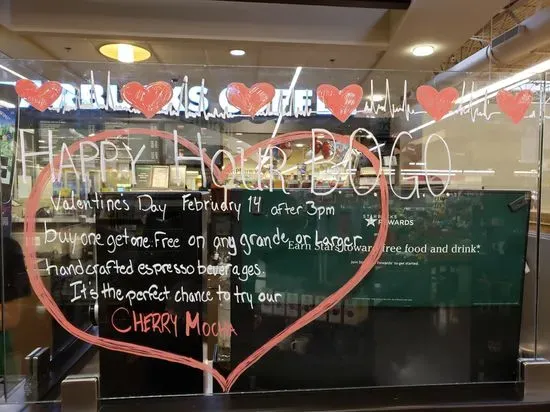 STARBUCKS COFFEE
HAPPY HOUR B.O.G.O
Valentines Day February 14 after 3pm
buy one get one free on any grande or Larger
handcrafted espresso beverages.
It's the perfect chance to try our
CHERRY MOCHA
STARBUCKS
REWARDS
Earn Stars toward free food and drink.*
Join Starbucks® Rewards to get started.